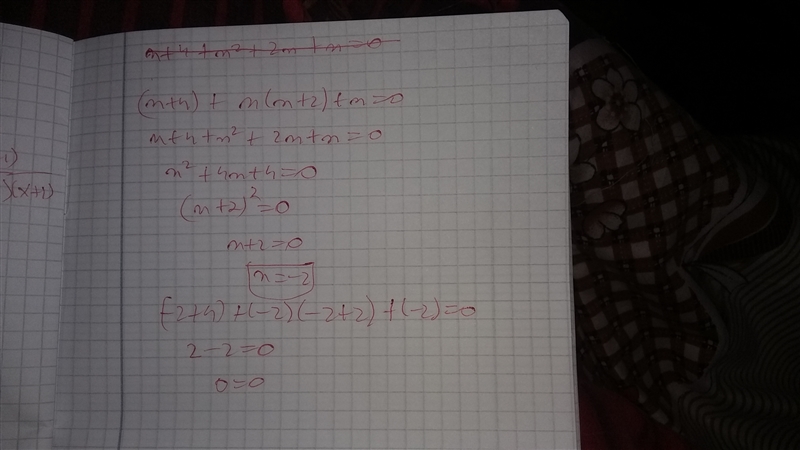 x+4+x²+2x+x=0
(x+4) + x(x+2)+x=0
x+4+x²+2x+x=0
x²+4x+4=0
(x+2)²=0
x+2=0
x=-2
(-2+4)+(-2)(-2+2)+(-2)=0
2-2=0
0=0
1)
)(x+1)